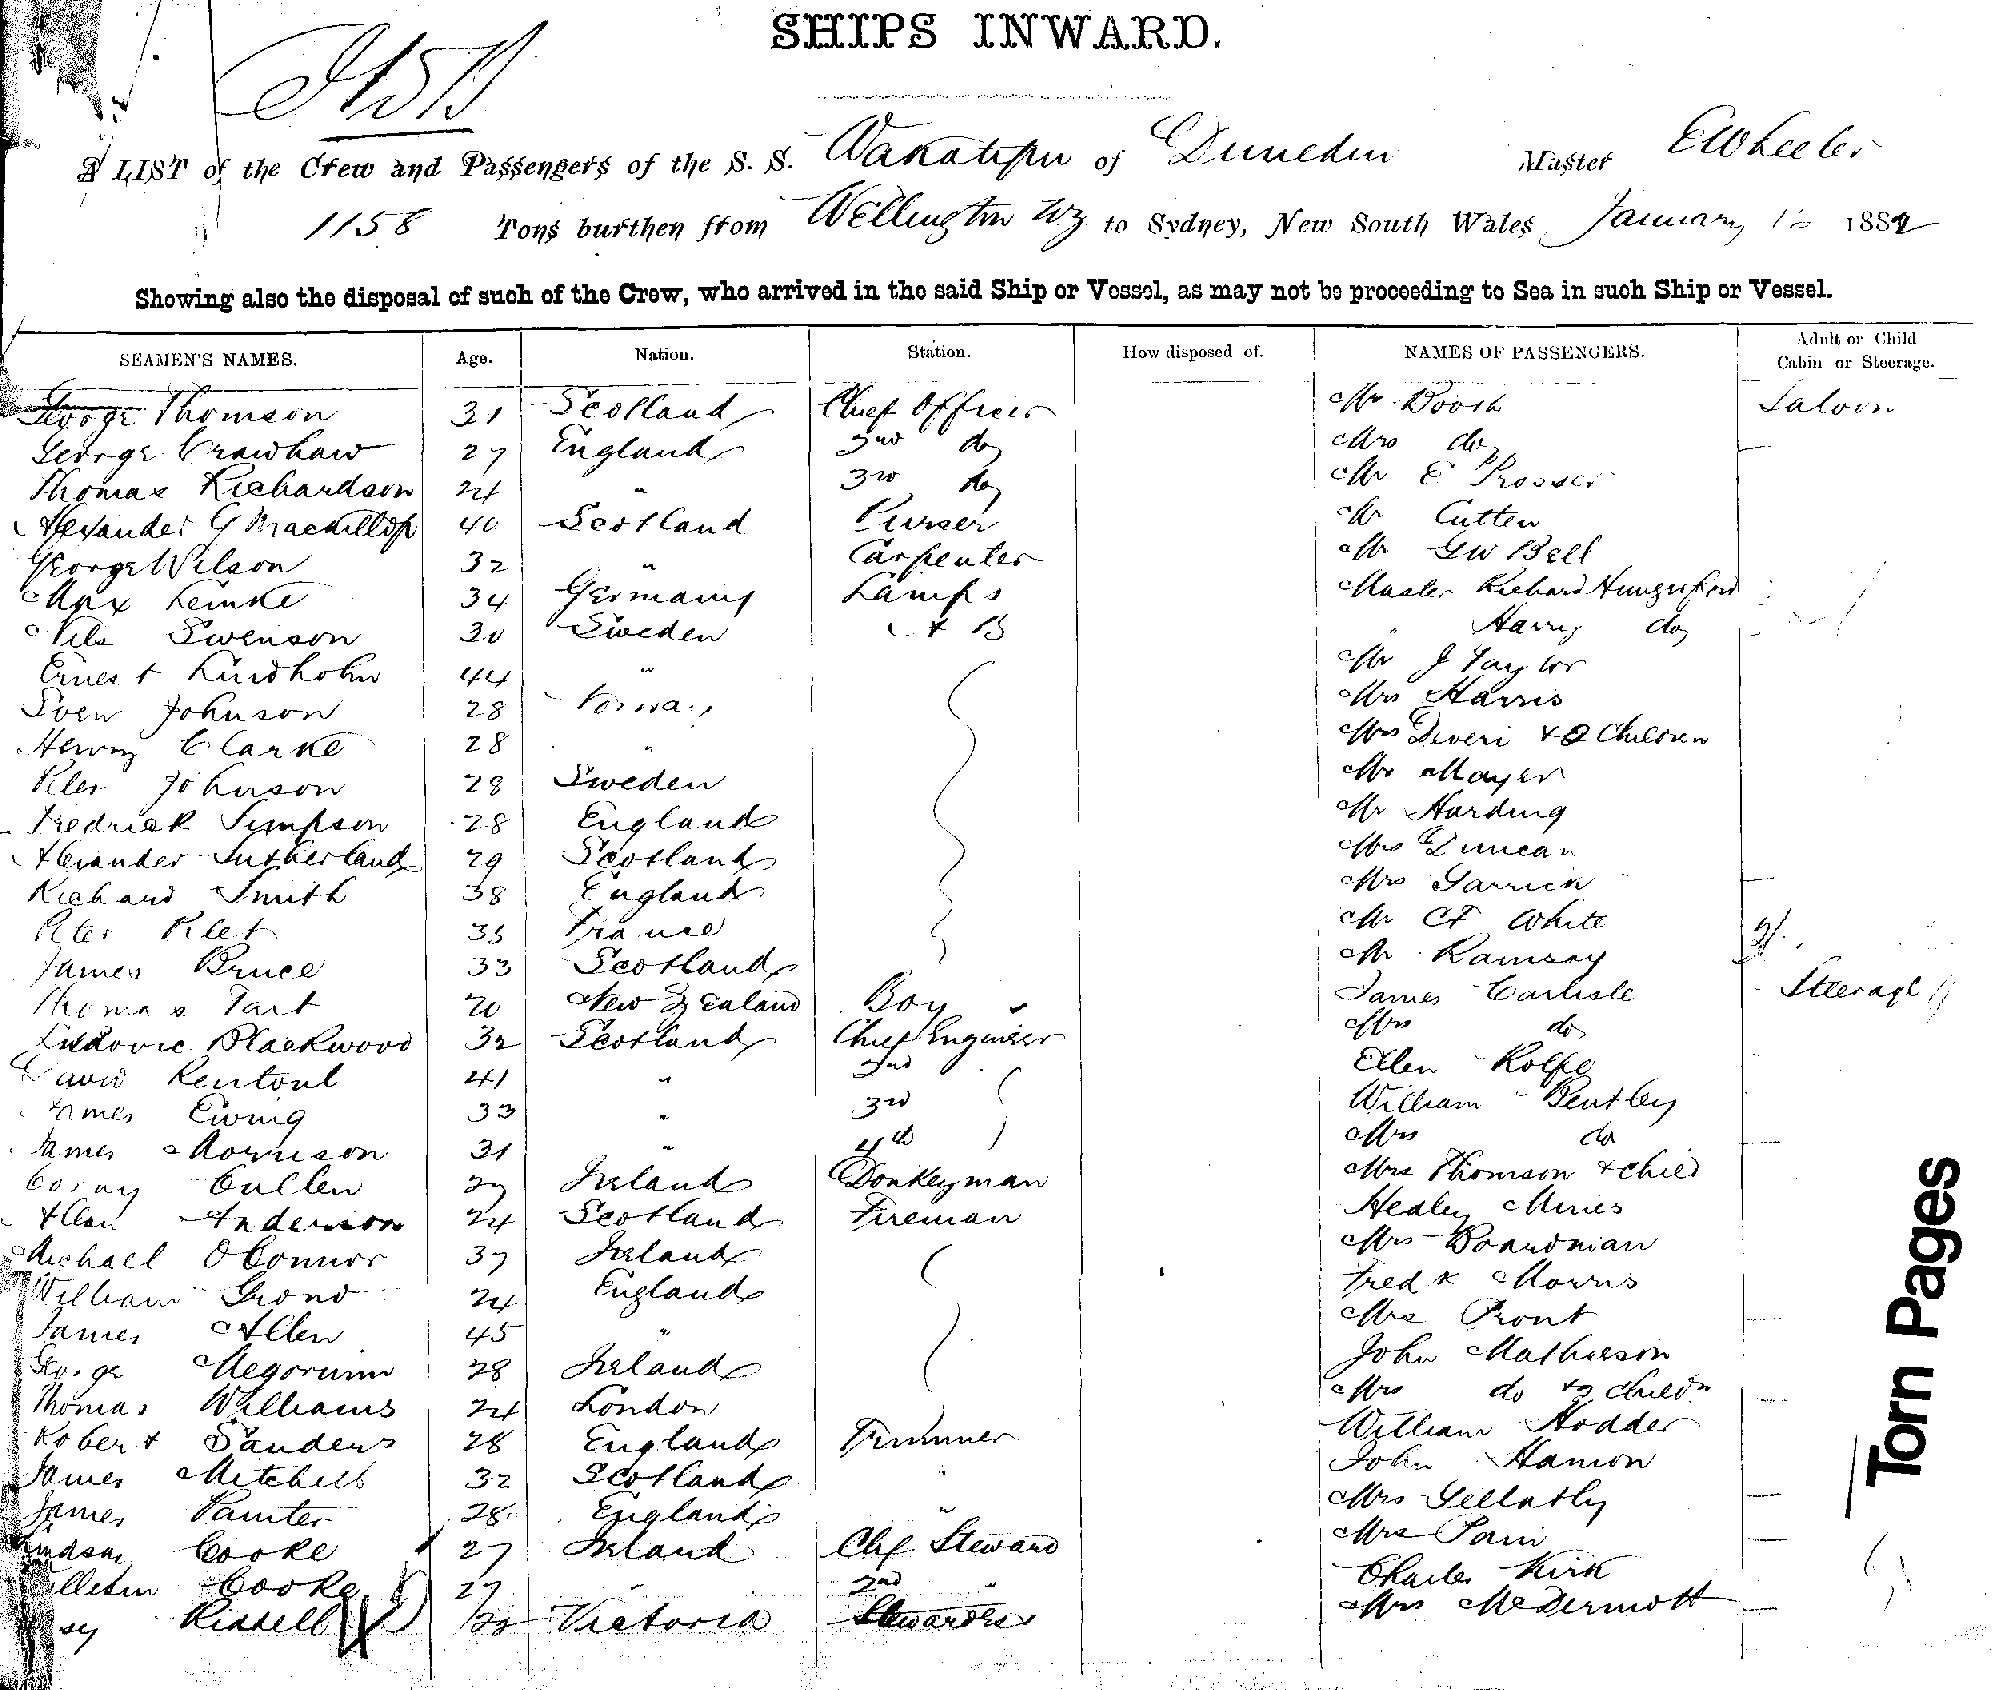 SHIPS INWARD.
A LIST of the Crew and Passengers of the S. S. Wakatipu of Dunedin Master E Wheeler
1158 Tons burthen from Wellington NZ to Sydney, New South Wales January 12 1882
Showing also the disposal of such of the Crew, who arrived in the said Ship or Vessel, as may not be proceeding to Sea in such Ship or Vessel.
SEAMEN'S NAMES. Age. Nation. Station. How disposed of. NAMES OF PASSENGERS. Adult or Child Cabin or Steerage.
George Thomson 31 Scotland Chief Officer Mr Booth Saloon
George Crawhaw 27 England 2nd do Mrs do
Thomas Richardson 24 " 3rd do Mr E Prosser
Alexander G Mackillop 40 Scotland Purser Mr Cutten
George Wilson 32 " Carpenter Mr GW Bell
Max Lemke 34 Germany Lamps Master Richard Hungerford
Nils Swenson 30 Sweden A B " Harry do
Ernest Lindholm 44 " Mr J Taylor
Sven Johnson 28 Norway Mrs Harris
Henry Clarke 28 " Mrs Deveri + 2 Children
Peter Johnson 28 Sweden Mr Mayer
Fredrick Simpson 28 England Mr Harding
Alexander Sutherland 29 Scotland Mrs Duncan
Richard Smith 38 England Mrs Garrick
Peter Klet 35 France Mr CF White
James Bruce 33 Scotland Mr Ramsay
Thomas Tait 20 New Zealand Boy James Carlisle Steerage
Ludovic Blackwood 32 Scotland Chief Engineer Mrs do
David Rentoul 41 " 2nd Ellen Rolfe
James Ewing 33 " 3rd William Bentley
James Morrison 31 " 4th Mrs do
Cullen 27 Ireland Donkeyman Mrs Thomson + child
Allan Anderson 24 Scotland Fireman Hedley Mines
Michael OConnor 37 Ireland Mrs Boardman
William Grono 24 England Fredk Morris
James Allen 45 " Mrs Pront
George Megorunn 28 Ireland John Mathieson
Thomas Williams 24 London Mrs do + 2 childn
Robert Sanders 28 England Trimmer William Hodder
James Mitchell 32 Scotland " John Hanion
James Painter 28 England " Mrs Gellatly
Lindsay Cooke 27 Ireland Chf Steward Mrs Pain
Cooke 27 " 2nd " Charles Kirk
Russell Victoria Stewardess Mrs McDermott
Torn Pages